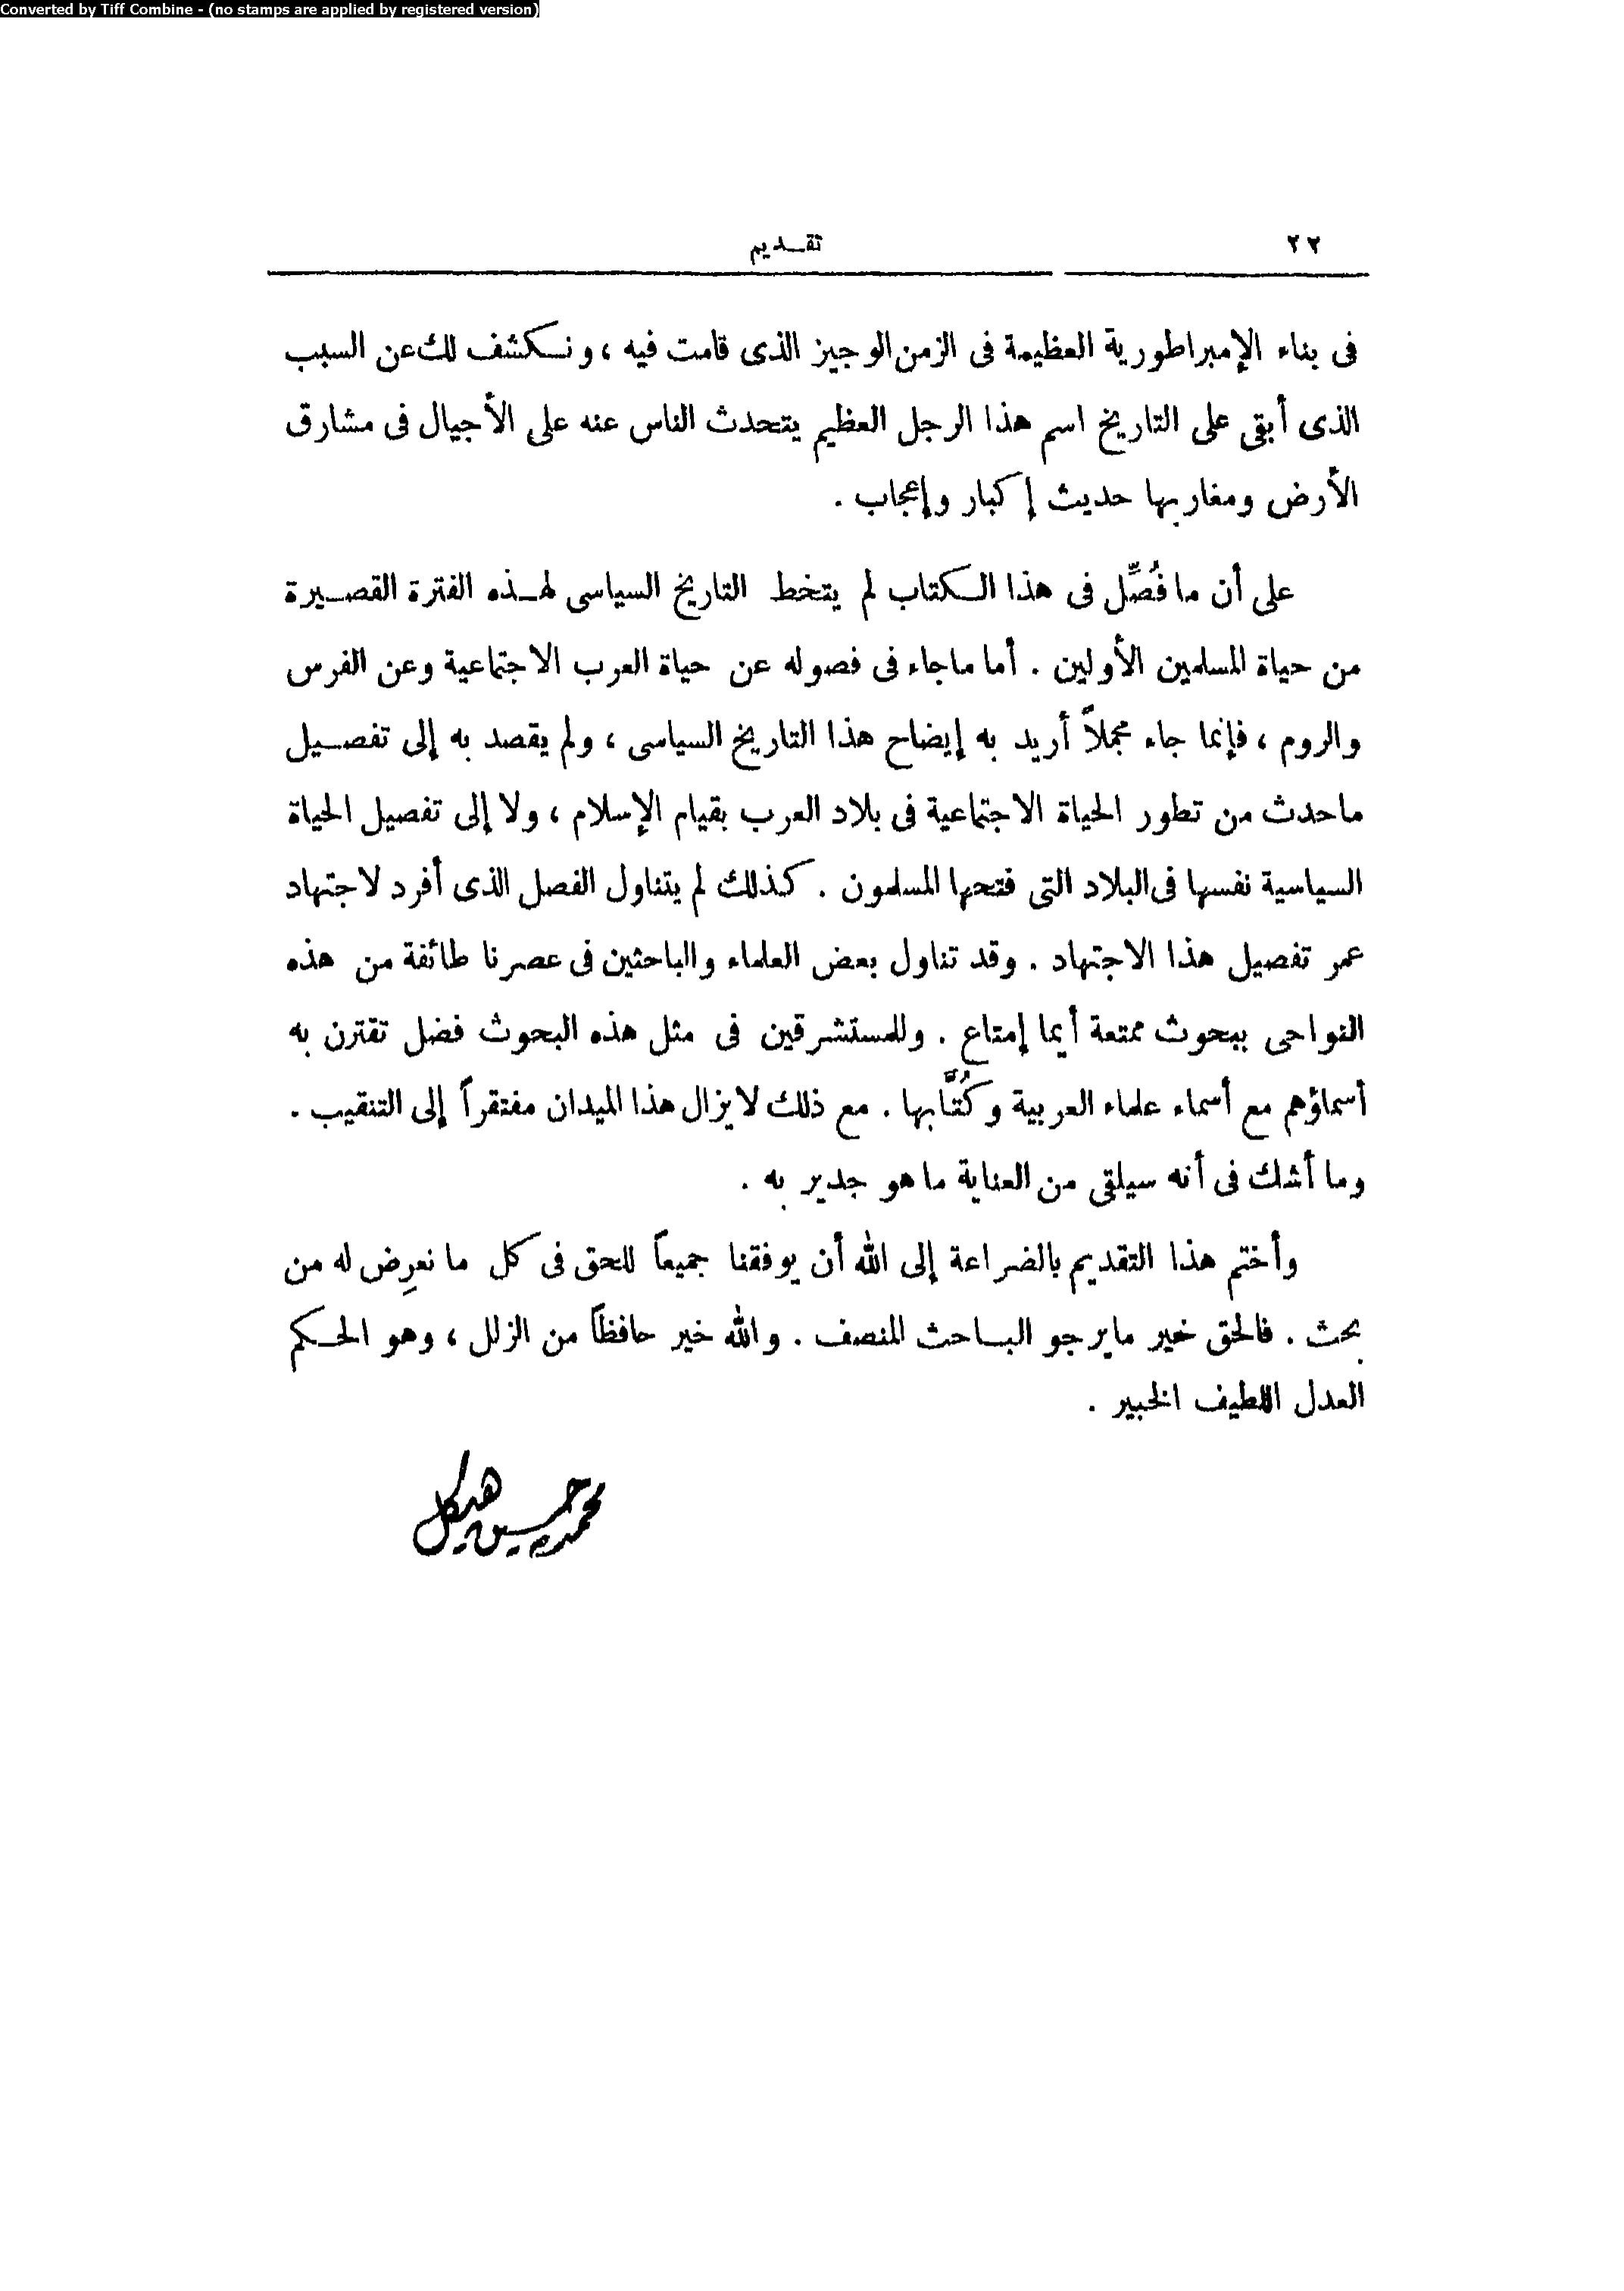 Converted by Tiff Combine - (no stamps are applied by registered version)
٢٢ تقـديم
فى بناء الإمبراطورية العظيمة فى الزمن الوجيز الذى قامت فيه ، ونـكشف لك عن السبب
الذى أبقى على التاريخ اسم هذا الرجل العظيم يتحدث الناس عنه على الأجيال فى مشارق
الأرض ومغاربها حديث إكبار وإعجاب .
على أن ما فُصِّل فى هذا الـكتاب لم يتخط التاريخ السياسى لهـذه الفترة القصـيرة
من حياة المسلمين الأولين . أما ماجاء فى فصوله عن حياة العرب الاجتماعية وعن الفرس
والروم ، فإنما جاء مجملاً أريد به إيضاح هذا التاريخ السياسى ، ولم يقصد به إلى تفصـيل
ماحدث من تطور الحياة الاجتماعية فى بلاد العرب بقيام الإسلام ، ولا إلى تفصيل الحياة
السياسية نفسها فى البلاد التى فتحها المسلمون . كذلك لم يتناول الفصل الذى أفرد لاجتهاد
عمر تفصيل هذا الاجتهاد . وقد تناول بعض العلماء والباحثين فى عصرنا طائفة من هذه
النواحى ببحوث ممتعة أيما إمتاع . وللمستشرقين فى مثل هذه البحوث فضل تقترن به
أسماؤهم مع أسماء علماء العربية وكُتَّابها . مع ذلك لايزال هذا الميدان مفتقراً إلى التنقيب .
وما أشك فى أنه سيلقى من العناية ما هو جدير به .
وأختم هذا التقديم بالضراعة إلى الله أن يوفقنا جميعاً للحق فى كل ما نعرِض له من
بحث . فالحق خير مايرجو البـاحث المنصف . والله خير حافظاً من الزلل ، وهو الحـكم
العدل اللطيف الخبير .
محمد حسين هيكل